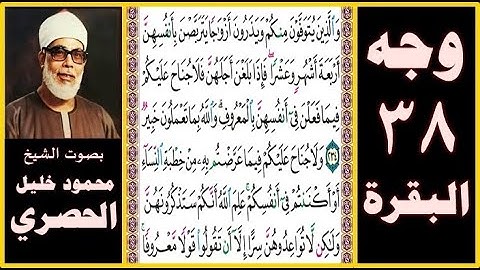 وجه
٣٨
البقرة
وَالَّذِينَ يُتَوَفَّوْنَ مِنكُمْ وَيَذَرُونَ أَزْوَاجًا يَتَرَبَّصْنَ بِأَنفُسِهِنَّ
أَرْبَعَةَ أَشْهُرٍ وَعَشْرًا فَإِذَا بَلَغْنَ أَجَلَهُنَّ فَلَا جُنَاحَ عَلَيْكُمْ
فِيمَا فَعَلْنَ فِي أَنفُسِهِنَّ بِالْمَعْرُوفِ وَاللَّهُ بِمَا تَعْمَلُونَ خَبِيرٌ
٢٣٤ وَلَا جُنَاحَ عَلَيْكُمْ فِيمَا عَرَّضْتُم بِهِ مِنْ خِطْبَةِ النِّسَاءِ
أَوْ أَكْنَنتُمْ فِي أَنفُسِكُمْ عَلِمَ اللَّهُ أَنَّكُمْ سَتَذْكُرُونَهُنَّ
وَلَٰكِن لَّا تُوَاعِدُوهُنَّ سِرًّا إِلَّا أَن تَقُولُوا قَوْلًا مَّعْرُوفًا
بصوت الشيخ
محمود خليل
الحصري